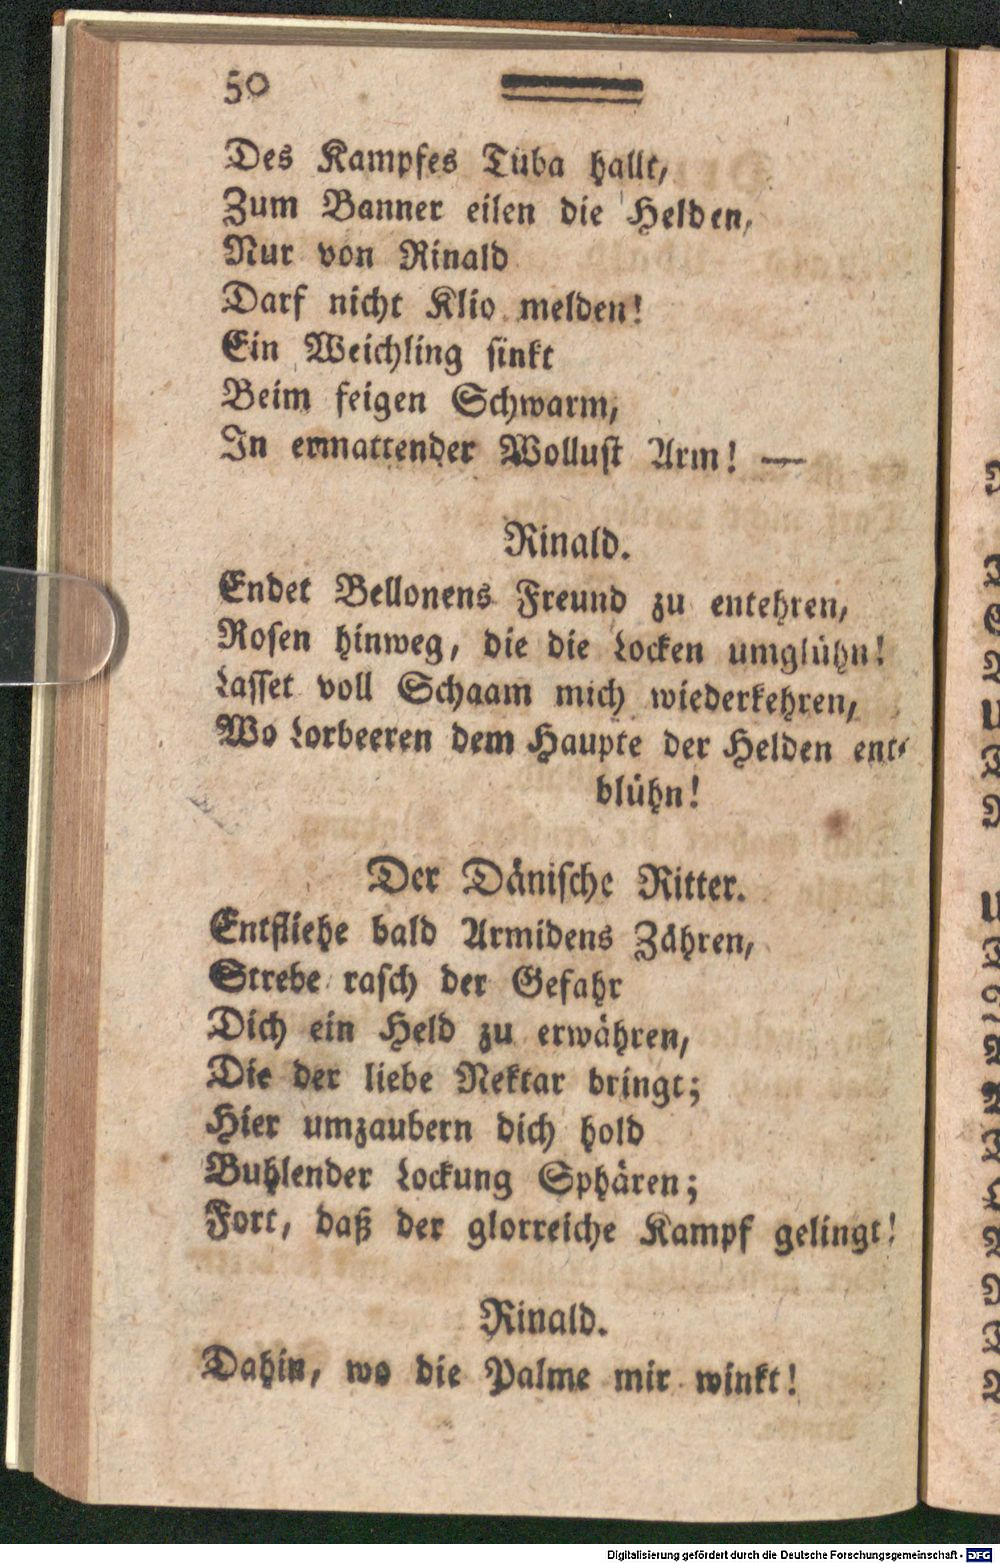 50
Des Kampfes Tuba hallt,
Zum Banner eilen die Helden,
Nur von Rinald
Darf nicht Klio melden!
Ein Weichling sinkt
Beim feigen Schwarm,
In ermattender Wollust Arm! —
Rinald.
Endet Bellonens Freund zu entehren,
Rosen hinweg, die die Locken umglühn!
Lasset voll Schaam mich wiederkehren,
Wo Lorbeeren dem Haupte der Helden ent-
blühn!
Der Dänische Ritter.
Entfliehe bald Armidens Zähren,
Strebe rasch der Gefahr
Dich ein Held zu erwähren,
Die der liebe Nektar bringt;
Hier umzaubern dich hold
Buhlender Lockung Sphären;
Fort, daß der glorreiche Kampf gelingt!
Rinald.
Dahin, wo die Palme mir winkt!
Digitalisierung gefördert durch die Deutsche Forschungsgemeinschaft - DFG